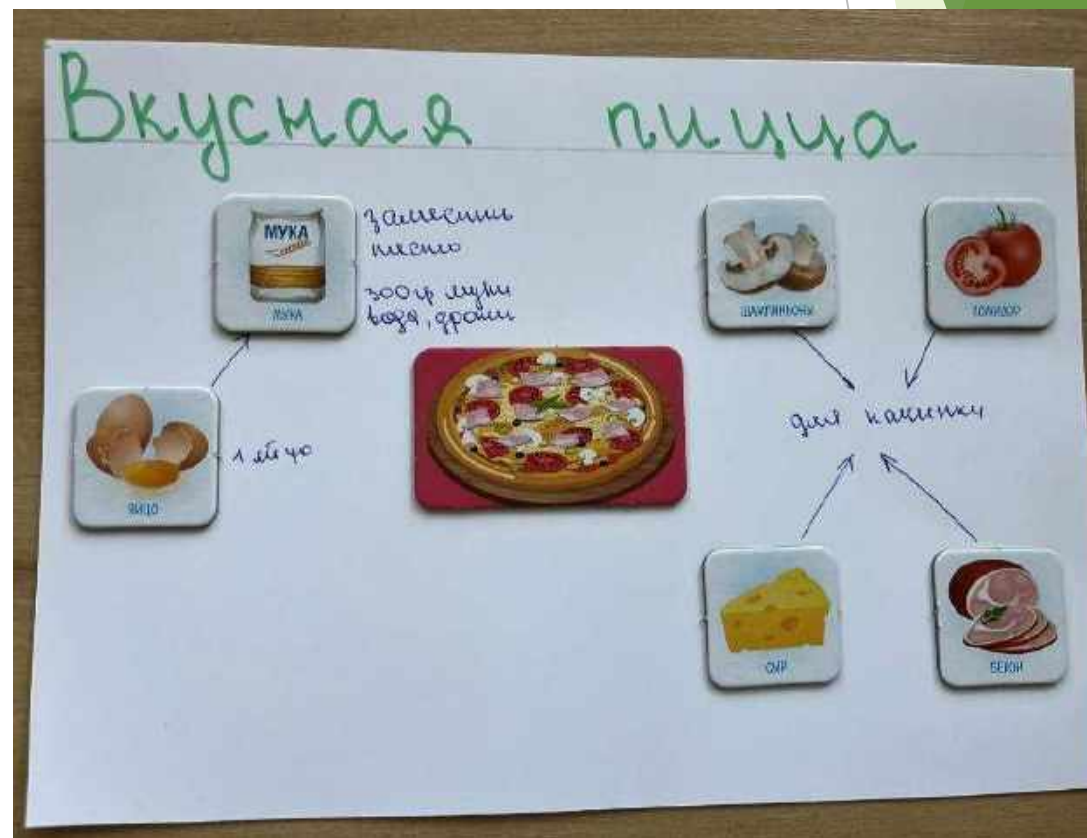 Вкусная пицца
МУКА
МУКА
замесить
тесто
300 гр муки
вода, дрожи
ЯЙЦО
1 яйцо
ШАМПИНЬОНЫ
ПОМИДОР
для начинки
СЫР
БЕКОН